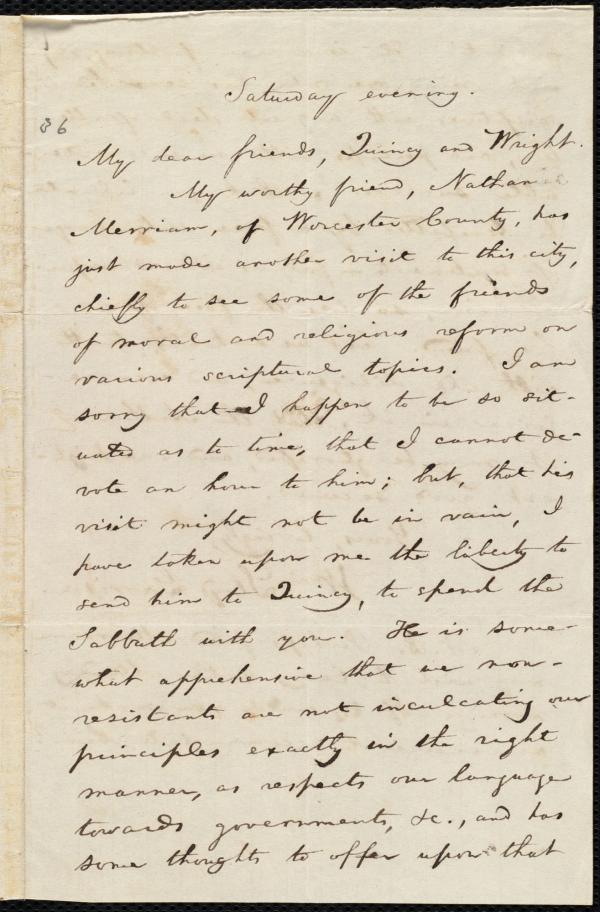 Saturday evening.
36
My dear friends, Quincy and Wright.
My worthy friend, Nathaniel
Merriam, of Worcester County, has
just made another visit to this city,
chiefly to see some of the friends
of moral and religious reform on
various scriptural topics. I am
sorry that I happen to be so sit-
uated as to time, that I cannot de-
vote an hour to him; but, that his
visit might not be in vain, I
have taken upon me the liberty to
send him to Quincy, to spend the
Sabbath with you. He is some-
what apprehensive that we non-
resistants are not inculcating our
principles exactly in the right
manner, as respects our language
towards governments, &c., and has
some thoughts to offer upon that